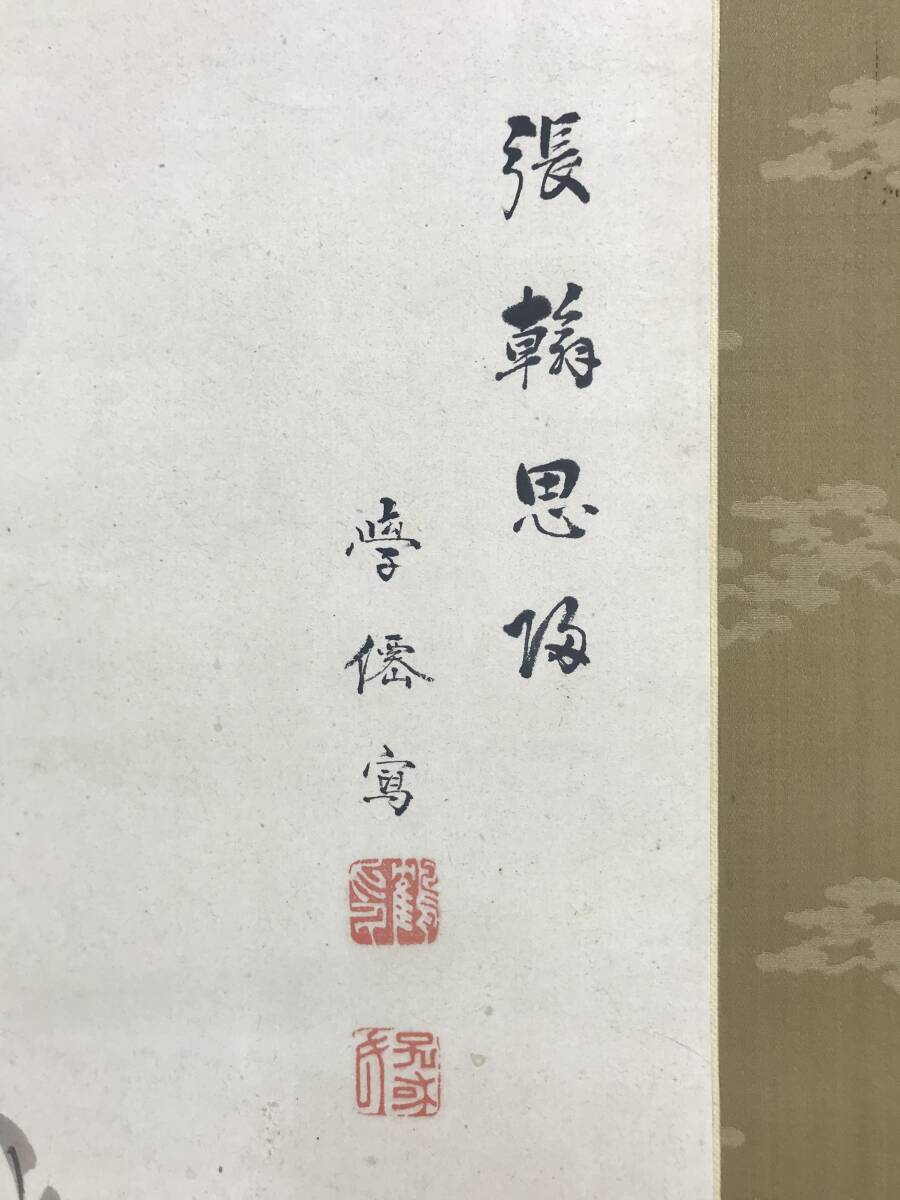 張翰思歸
學僊寫